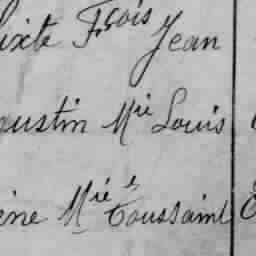 Sixte Frçois Jean
gustin Mie Louis
ène Mie Toussaint